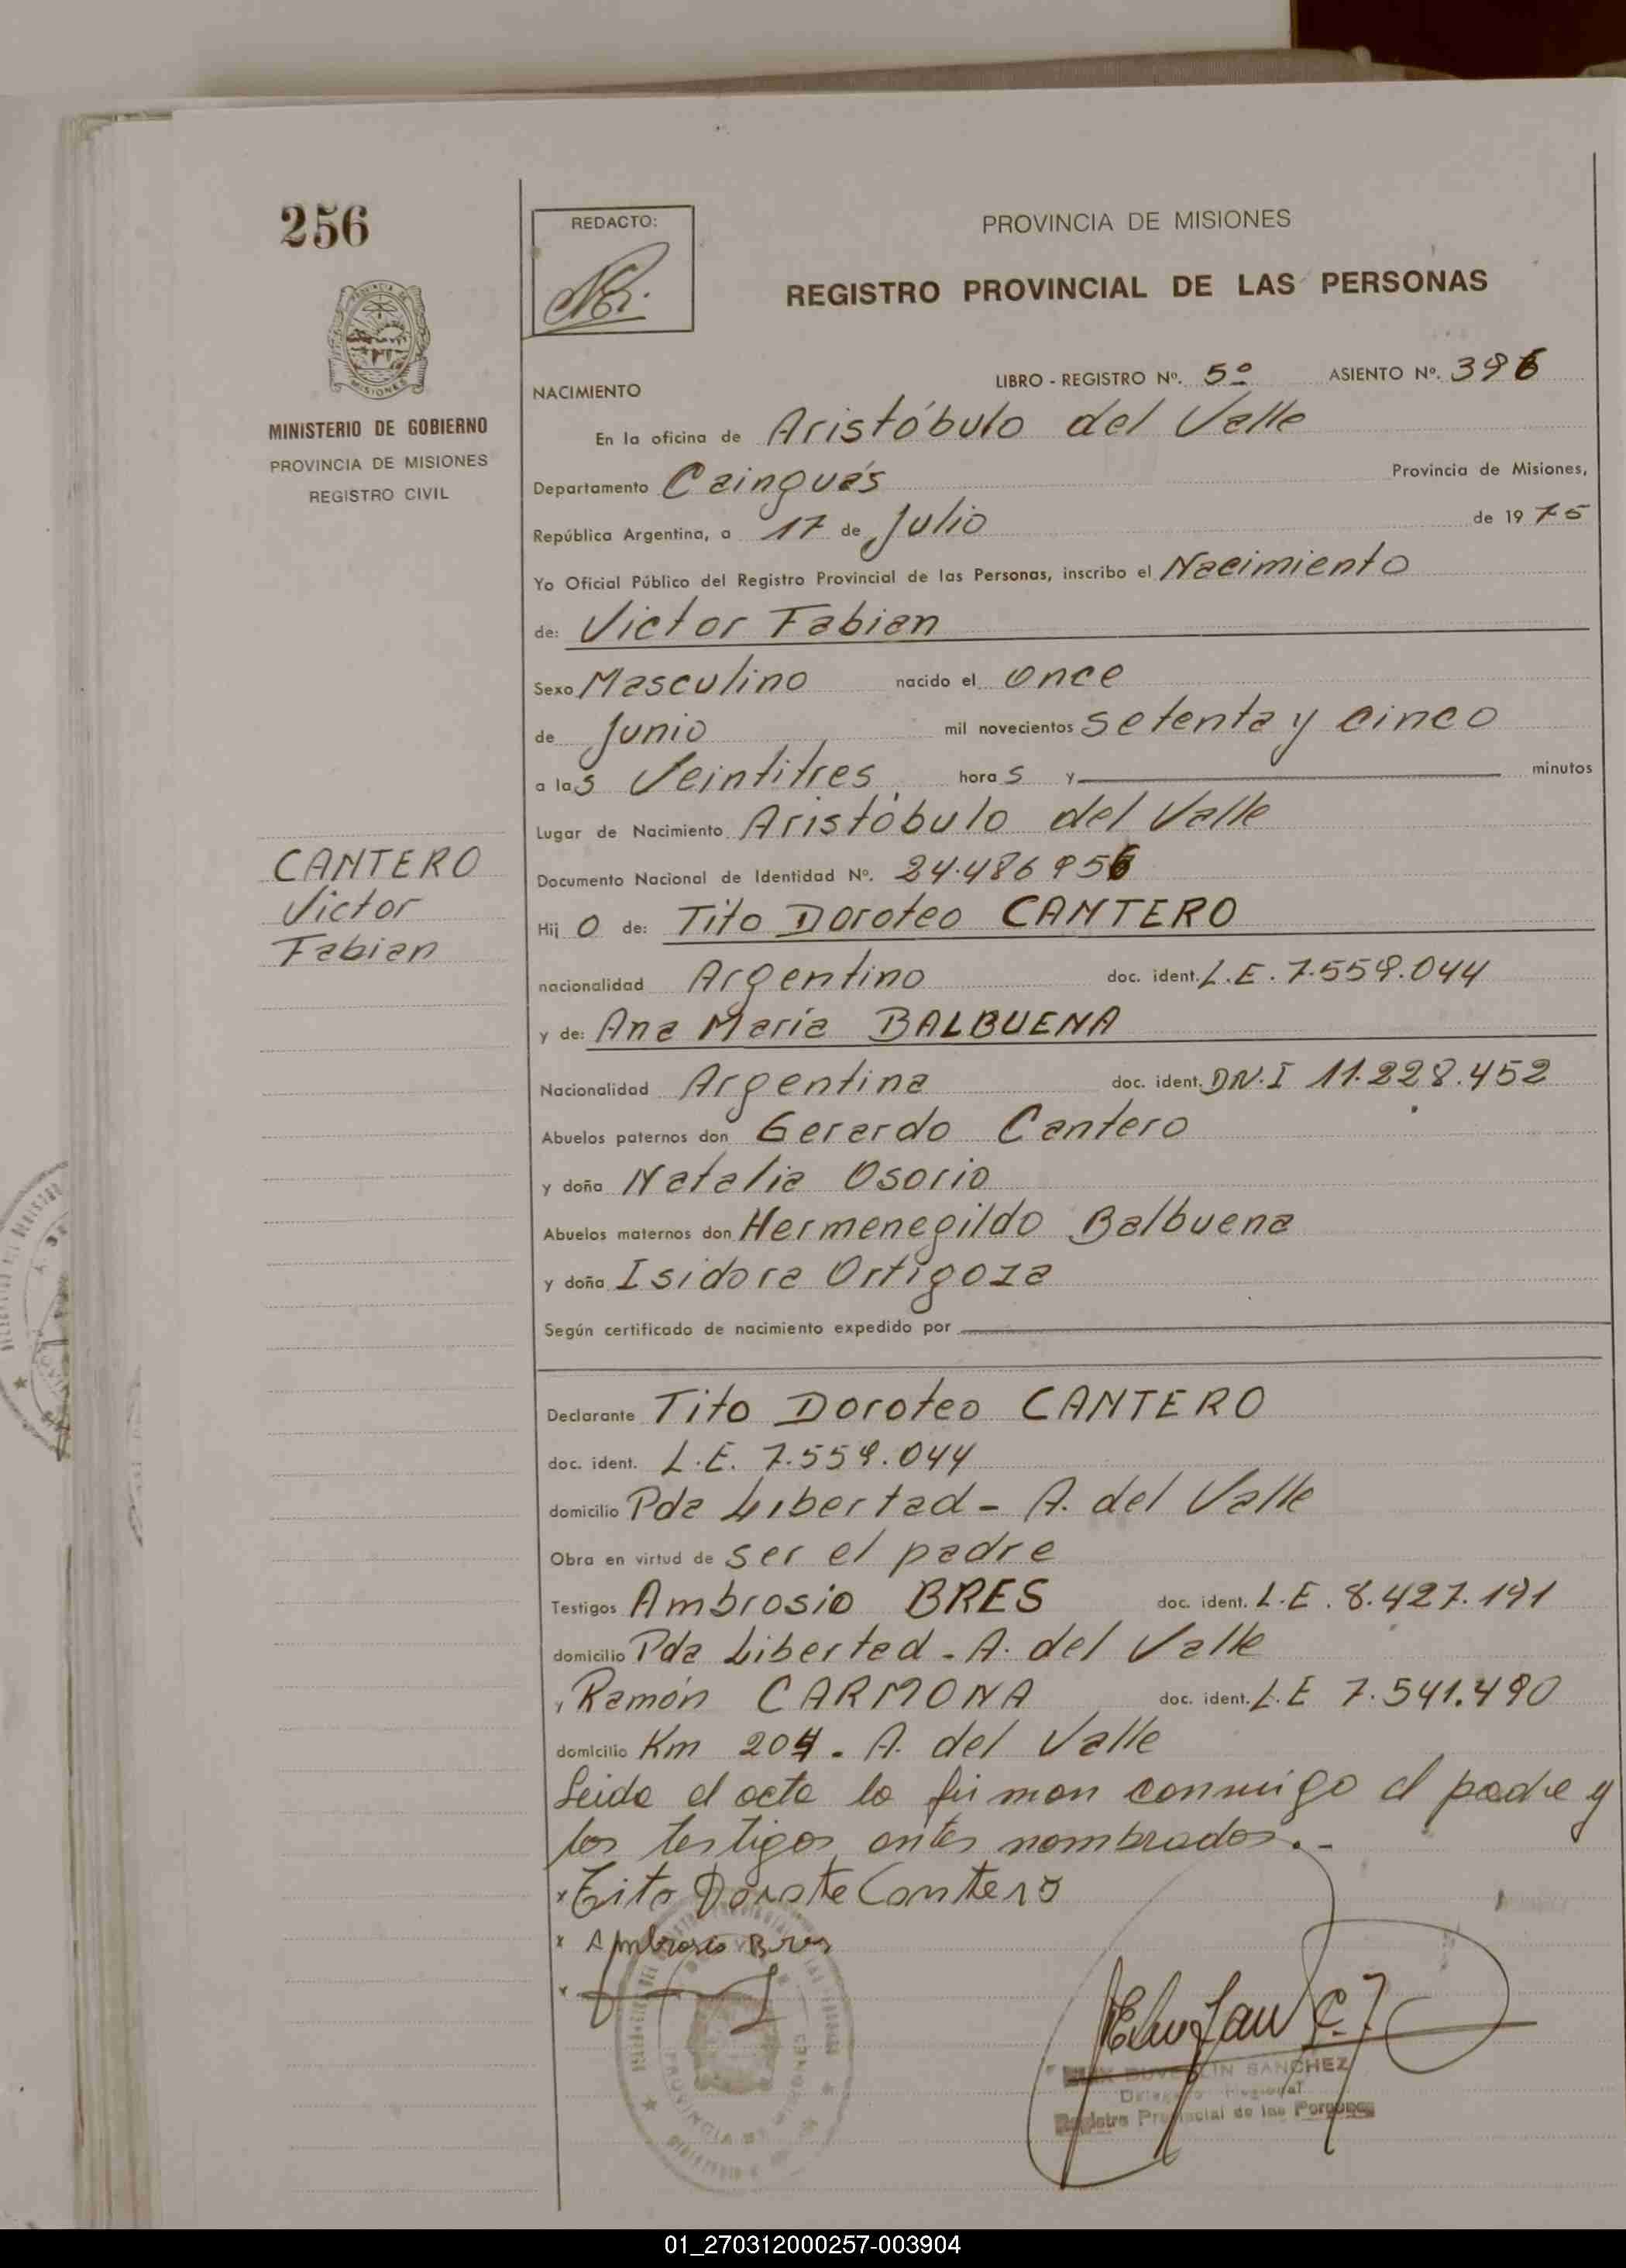 256
REDACTO:
PROVINCIA DE MISIONES
REGISTRO PROVINCIAL DE LAS PERSONAS
MISIONES
MINISTERIO DE GOBIERNO
PROVINCIA DE MISIONES
REGISTRO CIVIL
NACIMIENTO LIBRO - REGISTRO Nº. 5º ASIENTO Nº. 396
En la oficina de Aristóbulo del Valle
Departamento Cainguás Provincia de Misiones,
República Argentina, a 17 de Julio de 1975
Yo Oficial Público del Registro Provincial de las Personas, inscribo el Nacimiento
de: Victor Fabian
Sexo Masculino nacido el once
de Junio mil novecientos setenta y cinco
a las Veintitres horas y minutos
Lugar de Nacimiento Aristóbulo del Valle
Documento Nacional de Identidad Nº. 24.486956
CANTERO
Victor
Fabian
Hijo de: Tito Doroteo CANTERO
nacionalidad Argentino doc. ident. L.E. 7.559.044
y de: Ana María BALBUENA
Nacionalidad Argentina doc. ident. DN.I 11.228.452
Abuelos paternos don Gerardo Cantero
y doña Natalia Osorio
Abuelos maternos don Hermenegildo Balbuena
y doña Isidora Ortigoza
Según certificado de nacimiento expedido por
Declarante Tito Doroteo CANTERO
doc. ident. L.E. 7.559.044
domicilio Pda Libertad - A. del Valle
Obra en virtud de ser el padre
Testigos Ambrosio BRES doc. ident. L.E. 8.427.191
domicilio Pda Libertad - A. del Valle
y Ramón CARMONA doc. ident. L.E 7.541.490
domicilio Km 204. A. del Valle
Leida el acta la firman conmigo el padre y
los testigos antes nombrados.-
x Tito Doroteo Cantero
x Ambrosio Bres
x
SANCHEZ
Registro Provincial de las Personas
01_270312000257-003904